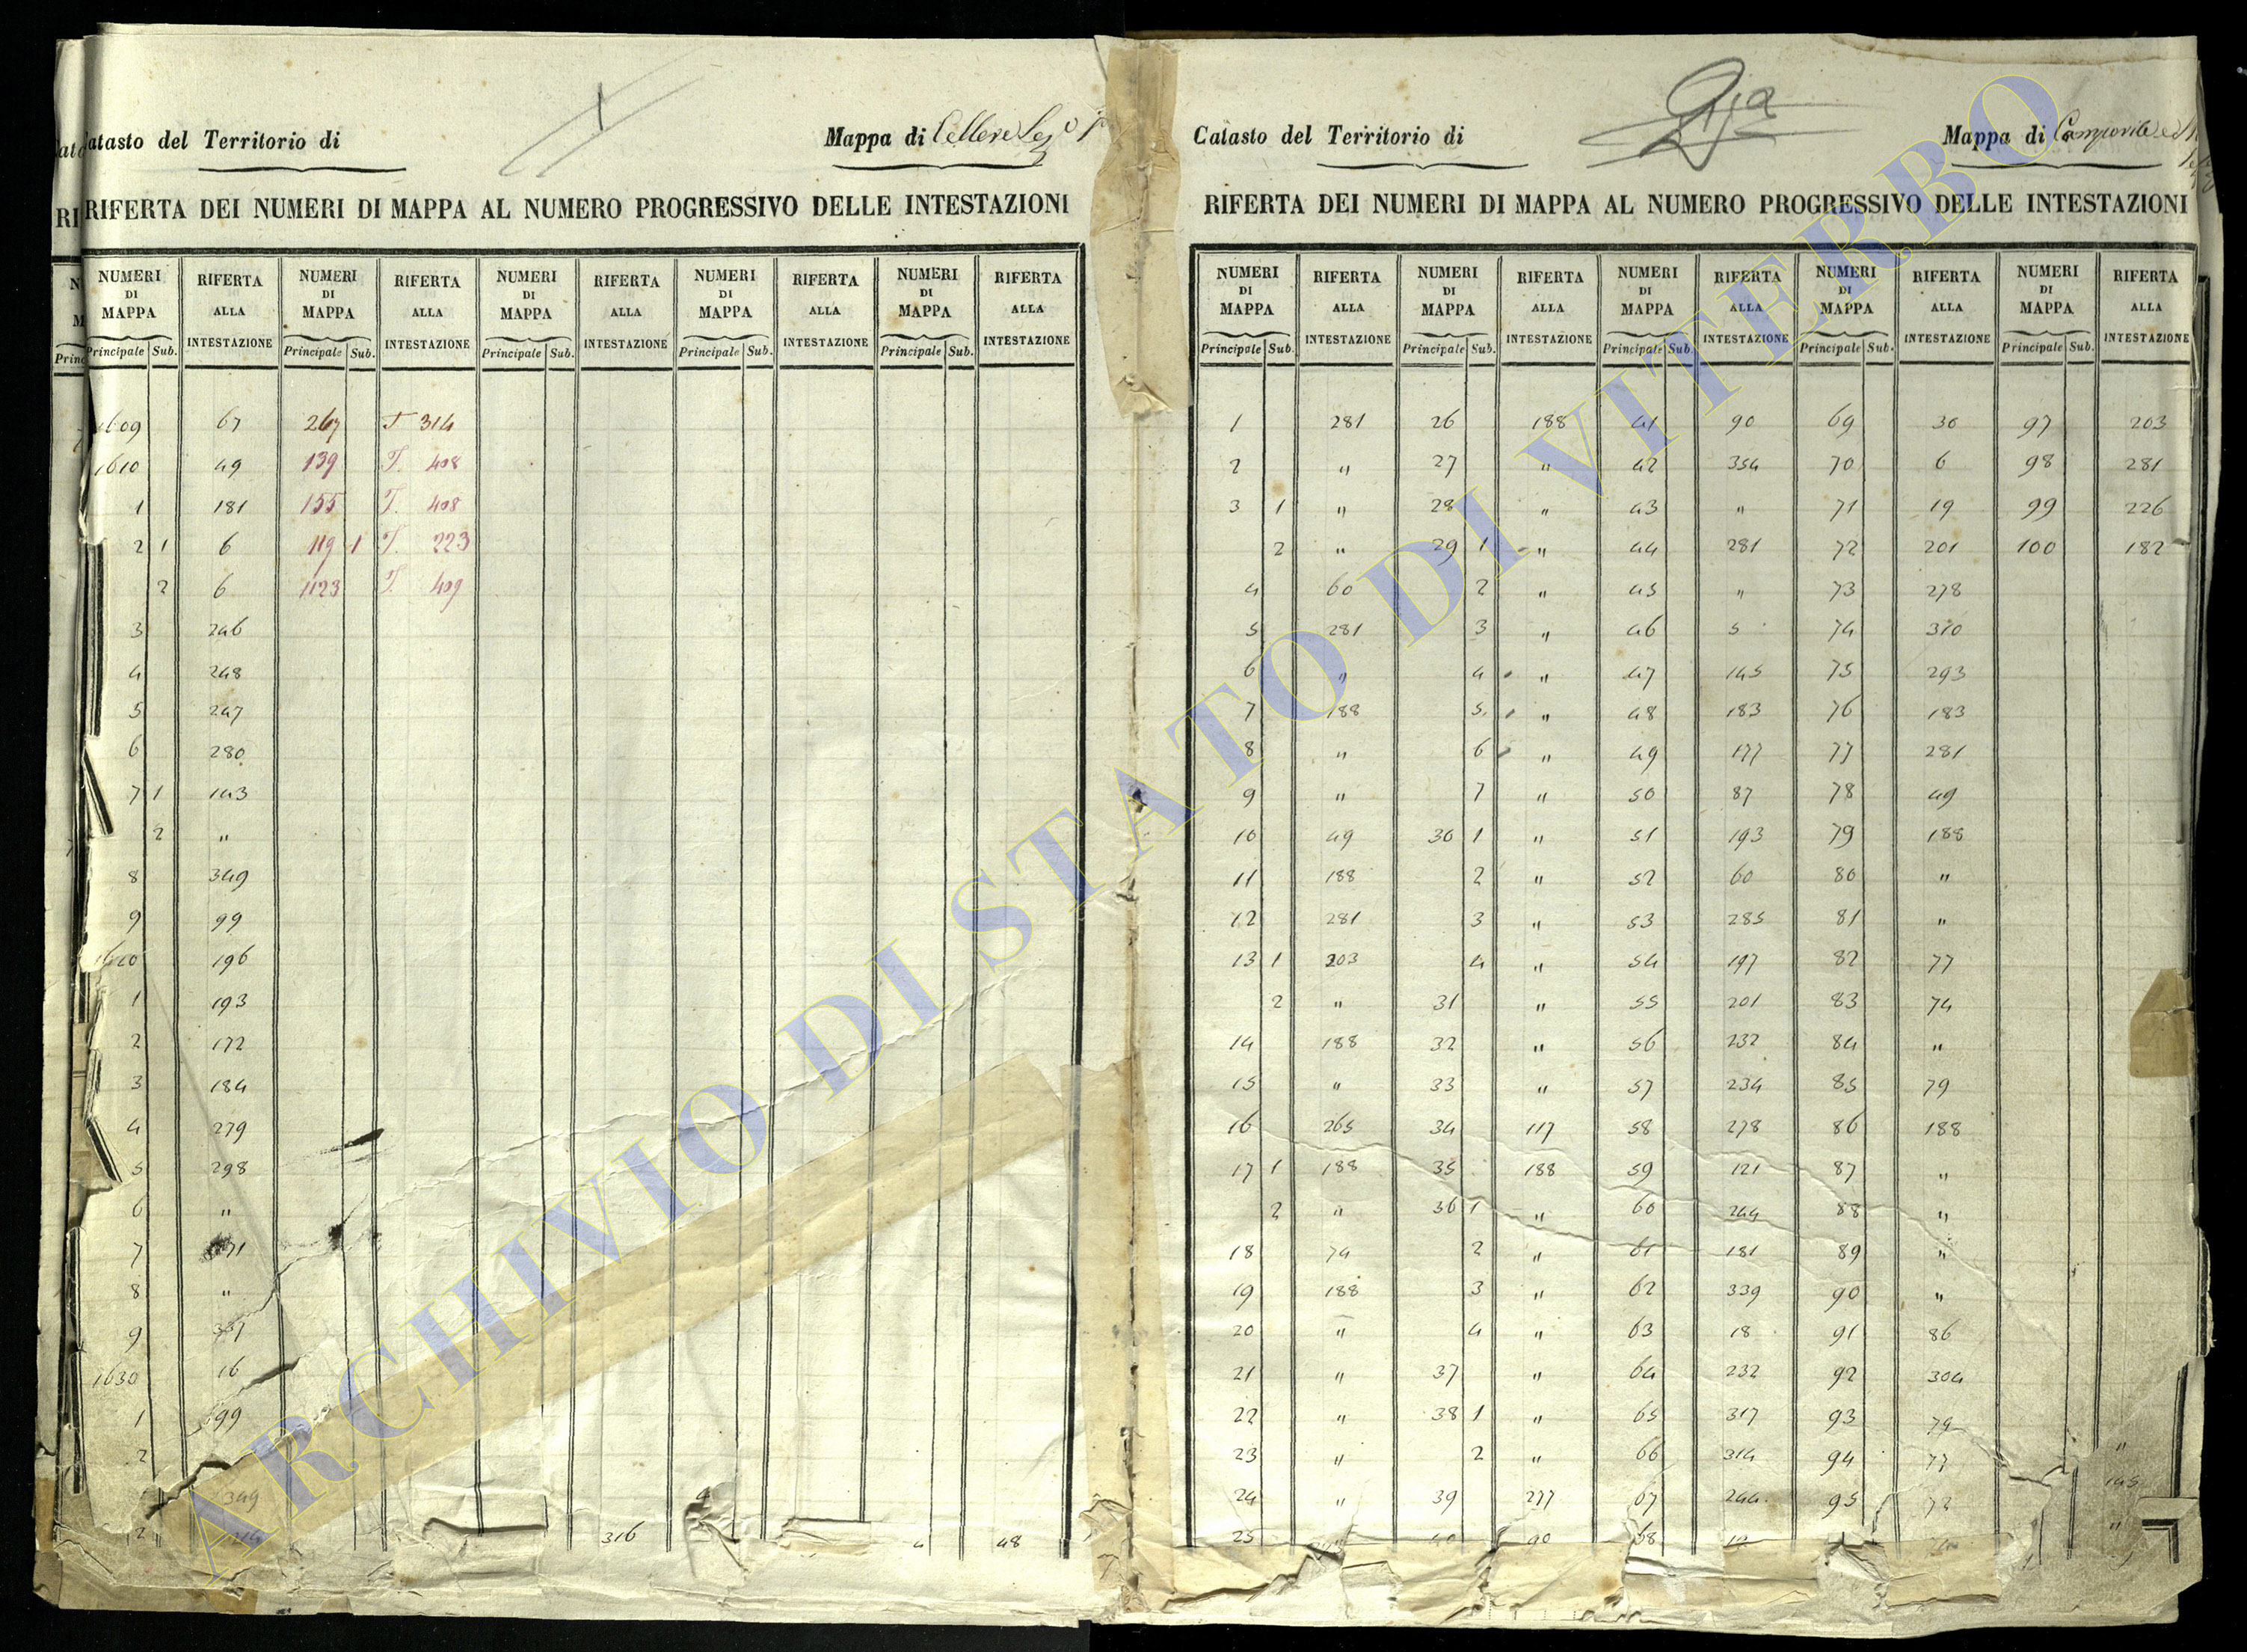 Catasto del Territorio di
Mappa di Cellere Sez° 1ª
RIFERTA DEI NUMERI DI MAPPA AL NUMERO PROGRESSIVO DELLE INTESTAZIONI
NUMERI DI MAPPA RIFERTA ALLA INTESTAZIONE NUMERI DI MAPPA RIFERTA ALLA INTESTAZIONE NUMERI DI MAPPA RIFERTA ALLA INTESTAZIONE NUMERI DI MAPPA RIFERTA ALLA INTESTAZIONE NUMERI DI MAPPA RIFERTA ALLA INTESTAZIONE
Principale Sub. Principale Sub. Principale Sub. Principale Sub. Principale Sub.
1609 67 267 T 314
1610 49 139 T. 408
1 181 155 T. 408
2 1 6 119 1 T. 223
2 6 1123 T. 409
3 246
4 248
5 247
6 280
7 1 143
2 "
8 349
9 99
1620 196
1 193
2 172
3 184
4 279
5 298
6 "
7
8 "
9
1630 16
1 99
2
349
2
316
4 48
Catasto del Territorio di
Mappa di
RIFERTA DEI NUMERI DI MAPPA AL NUMERO PROGRESSIVO DELLE INTESTAZIONI
NUMERI DI MAPPA RIFERTA ALLA INTESTAZIONE NUMERI DI MAPPA RIFERTA ALLA INTESTAZIONE NUMERI DI MAPPA RIFERTA ALLA INTESTAZIONE NUMERI DI MAPPA RIFERTA ALLA INTESTAZIONE NUMERI DI MAPPA RIFERTA ALLA INTESTAZIONE
Principale Sub. Principale Sub. Principale Sub. Principale Sub. Principale Sub.
1 281 26 188 41 90 69 30 97 203
2 " 27 " 42 354 70 6 98 281
3 1 " 28 " 43 " 71 19 99 226
2 " 29 1 " 44 281 72 201 100 182
4 60 2 " 45 " 73 278
5 281 3 " 46 5 74 310
6 " 4 " 47 145 75 293
7 188 5 " 48 183 76 183
8 " 6 " 49 177 77 281
9 " 7 " 50 87 78 49
10 49 30 1 " 51 193 79 188
11 188 2 " 52 60 80 "
12 281 3 " 53 285 81 "
13 1 203 4 " 54 197 82 77
2 " 31 " 55 201 83 74
14 188 32 " 56 232 84 "
15 " 33 " 57 234 85 79
16 265 34 117 58 278 86 188
17 1 188 35 188 59 121 87 "
2 " 36 1 " 60 244 88 "
18 74 2 " 61 181 89 "
19 188 3 " 62 339 90 "
20 " 4 " 63 18 91 86
21 " 37 " 64 232 92 304
22 " 38 1 " 65 317 93 79
23 " 2 " 66 314 94 77 "
24 " 39 277 67 244 95 72 145
25 40 90 68 "
ARCHIVIO DI STATO DI VITERBO